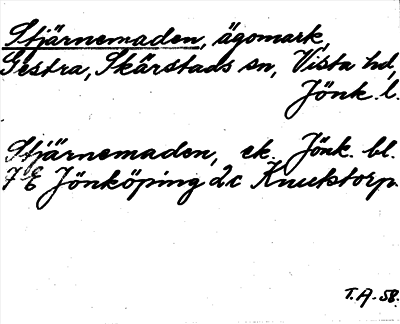 Stjärnemaden, ägomark,
Gestra, Skärstads sn, Vista hd,
Jönk. l.
Stjärnemaden, ek. Jönk. bl.
7E Jönköping 2c Knutstorp.
T.A. 58.